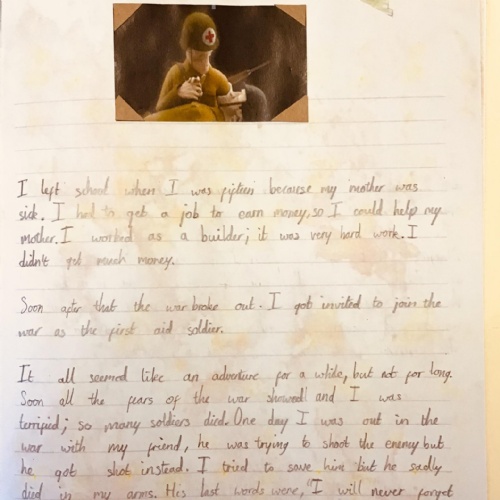 I left school when I was fifteen because my mother was
sick. I had to get a job to earn money, so I could help my
mother. I worked as a builder; it was very hard work. I
didn't get much money.
Soon after that the war broke out. I got invited to join the
war as the first aid soldier.
It all seemed like an adventure for a while, but not for long.
Soon all the fears of the war showed! and I was
terrified; so many soldiers died. One day I was out in the
war with my friend, he was trying to shoot the enemy but
he got shot instead. I tried to save him but he sadly
died in my arms. His last words were, "I will never forget